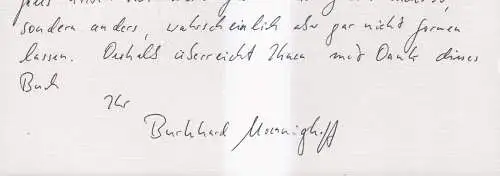 sondern anders, wahrscheinlich aber gar nicht formen
lassen. Deshalb überreicht Ihnen mit Dank dieses
Buch
Ihr
Burkhard Moennighoff